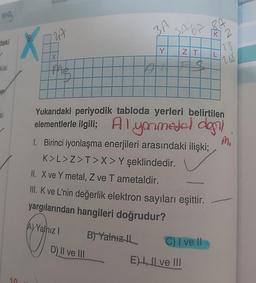 2A
3A 5A 6A 7A 8A
K
Y Z T L
X
Mg
Yukarıdaki periyodik tabloda yerleri belirtilen
elementlerle ilgili; Al yarımetal değil
I. Birinci iyonlaşma enerjileri arasındaki ilişki;
K>L>Z>T>X>Y şeklindedir.
II. X ve Y metal, Z ve T ametaldir.
III. K ve L'nin değerlik elektron sayıları eşittir.
yargılarından hangileri doğrudur?
A) Yalnız I
B) Yalnız II
C) I ve II
D) II ve III
E) I, II ve III